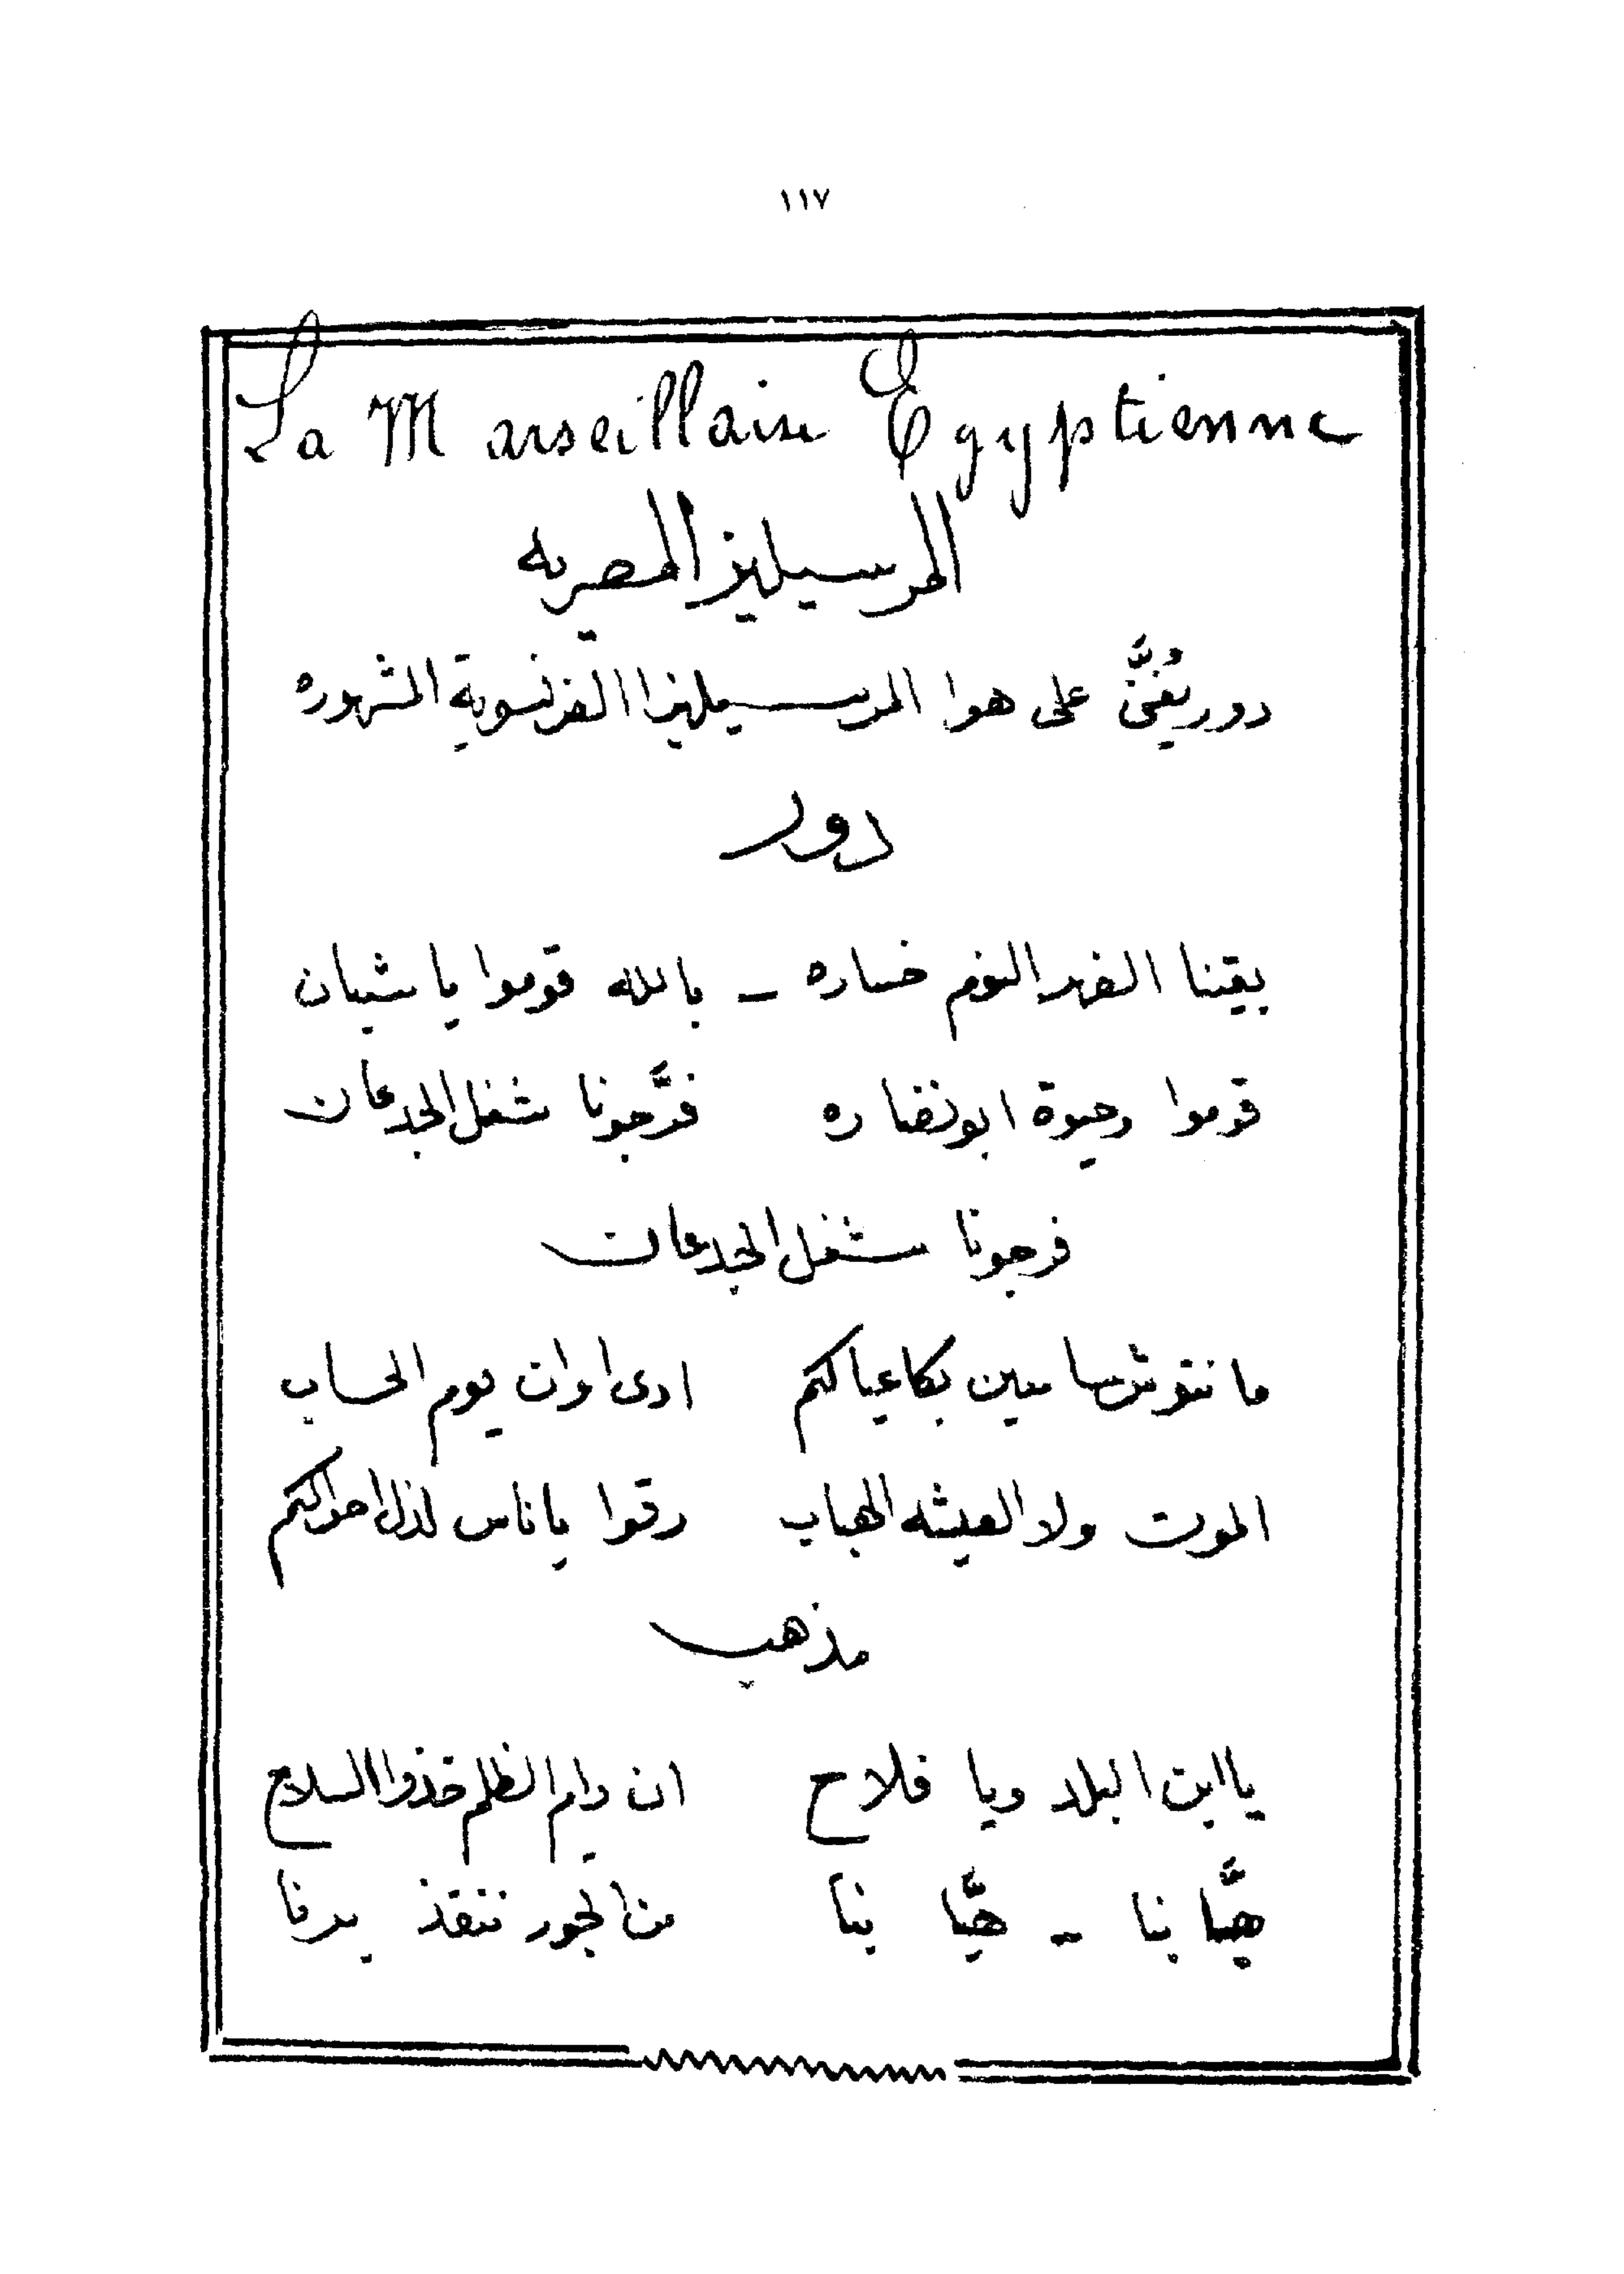 ١١٧
La Marseillaise Egyptienne
المرسيليز المصريه
دور يُغنَّى على هوا المرسيليزا الفرنسوية المشهوره
دور
بقينا الضهر النوم خساره – بالله قوموا يا شبان
قوموا وحيوة ابو نضاره فرَّجونا شغل الجدعان
فرجونا شغل الجدعان
ما نتوش سامعين بكا عيالكم ادى اوان يوم الحساب
الموت ولا العيشه الهباب رقوا يا ناس لذل احوالكم
مذهب
يا ابن البلد ويا فلاح ان دام الظلم خذوا السلاح
هيَّا بنا – هيَّا بنا من الجور ننقذ برنا